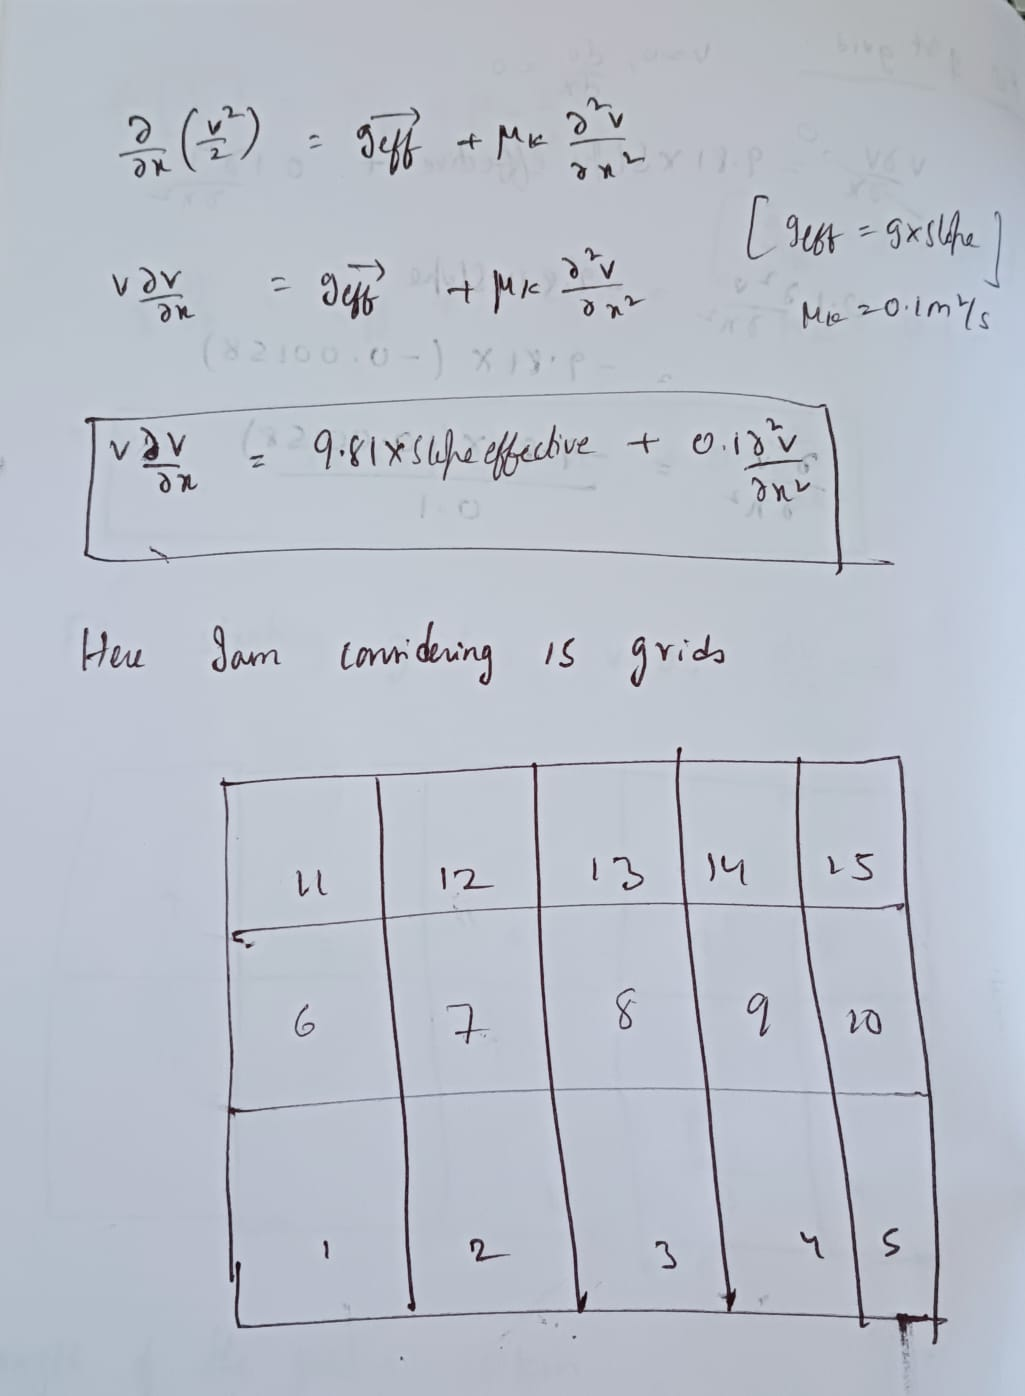 ∂/∂x (v²/2) = g⃗eff + μk ∂²v/∂x²
[geff = g x slope]
v ∂v/∂x = g⃗eff + μk ∂²v/∂x²
μk = 0.1 m²/s
v ∂v/∂x = 9.81 x slope effective + 0.1 ∂²v/∂x²
Here I am considering 15 grids
11 12 13 14 15
6 7 8 9 10
1 2 3 4 5